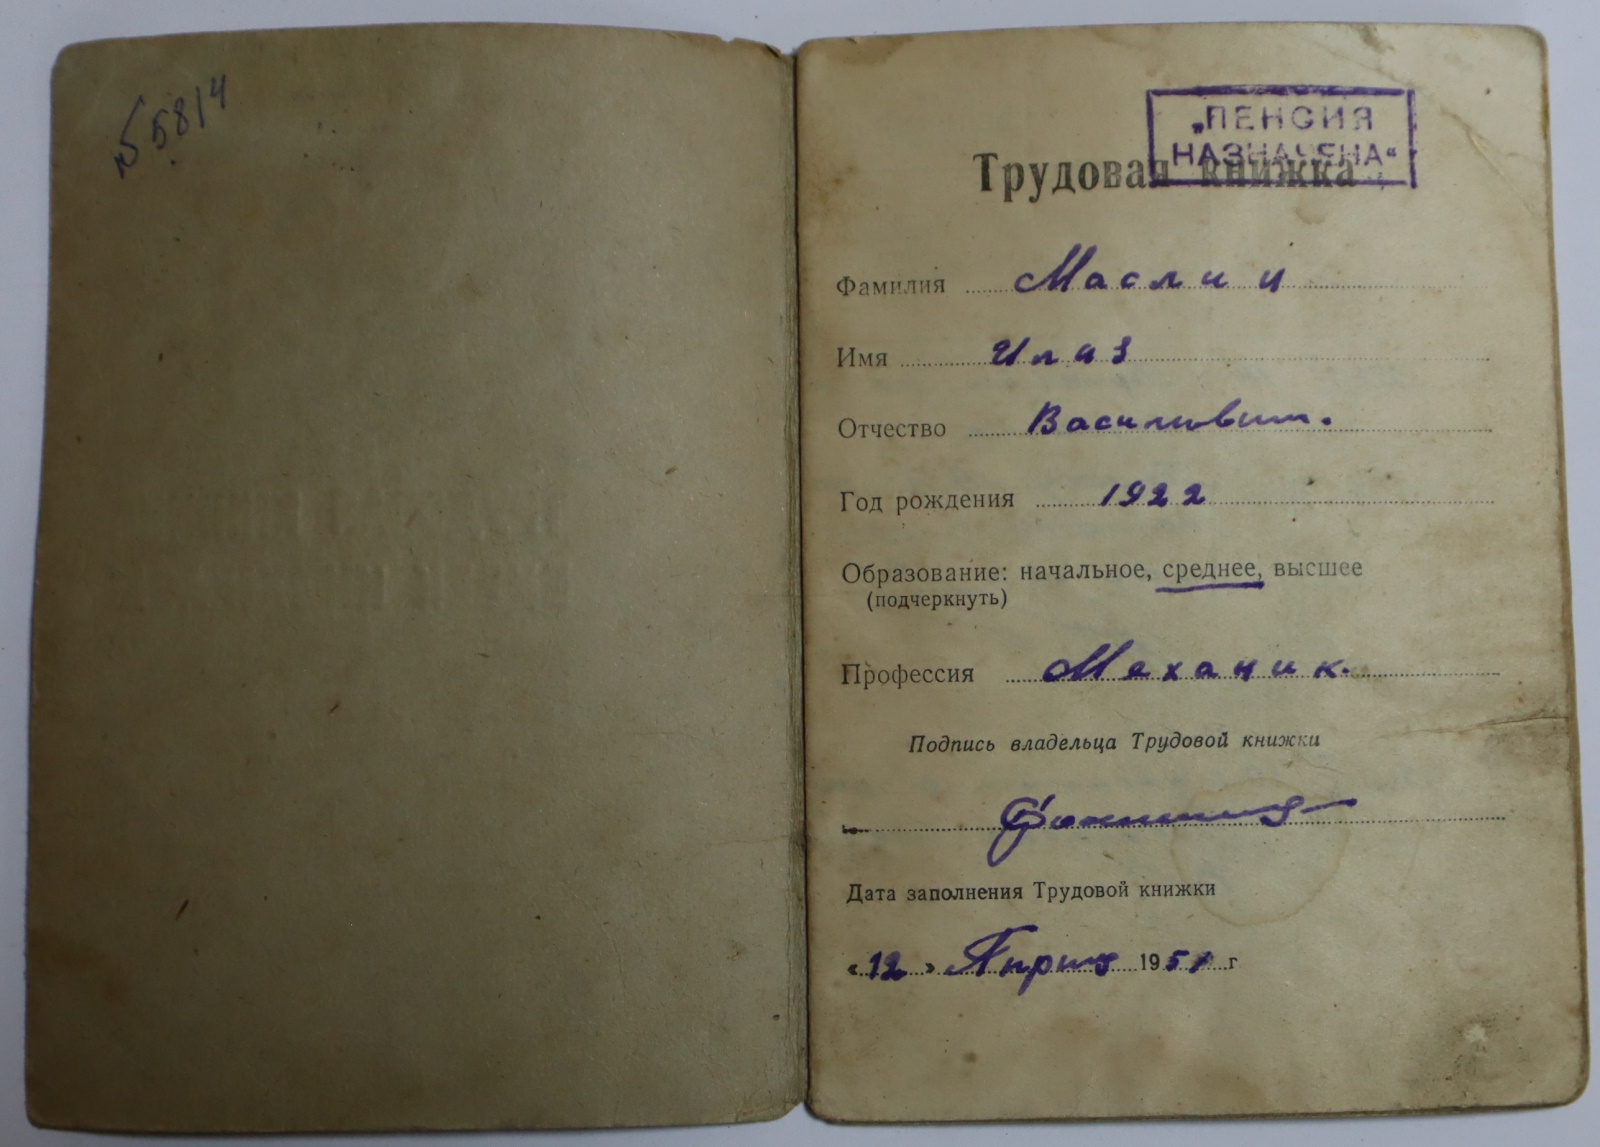 55814
„ПЕНСИЯ
НАЗНАЧЕНА“
Трудовая книжка
Фамилия Маслий
Имя Илаз
Отчество Василович.
Год рождения 1922
Образование: начальное, среднее, высшее
(подчеркнуть)
Профессия Механик.
Подпись владельца Трудовой книжки
Дата заполнения Трудовой книжки
«12» Апрель 1951 г